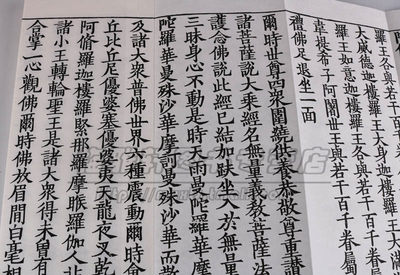 羅王各與若干百千眷
大威德迦樓羅王大身迦樓羅王大滿
羅王如意迦樓羅王各與若干百千眷屬
韋提希子阿闍世王與若干百千眷屬
禮佛足退坐一面
爾時世尊四眾圍繞供養恭敬尊重讚
諸菩薩說大乘經名無量義教菩薩法
護念佛說此經已結加趺坐入於無量
三昧身心不動是時天雨曼陀羅華摩
陀羅華曼殊沙華摩訶曼殊沙華而散
及諸大眾普佛世界六種震動爾時會
丘比丘尼優婆塞優婆夷天龍夜叉乾
阿脩羅迦樓羅緊那羅摩睺羅伽人非
諸小王轉輪聖王是諸大眾得未曾有
合掌一心觀佛爾時佛放眉間白毫相